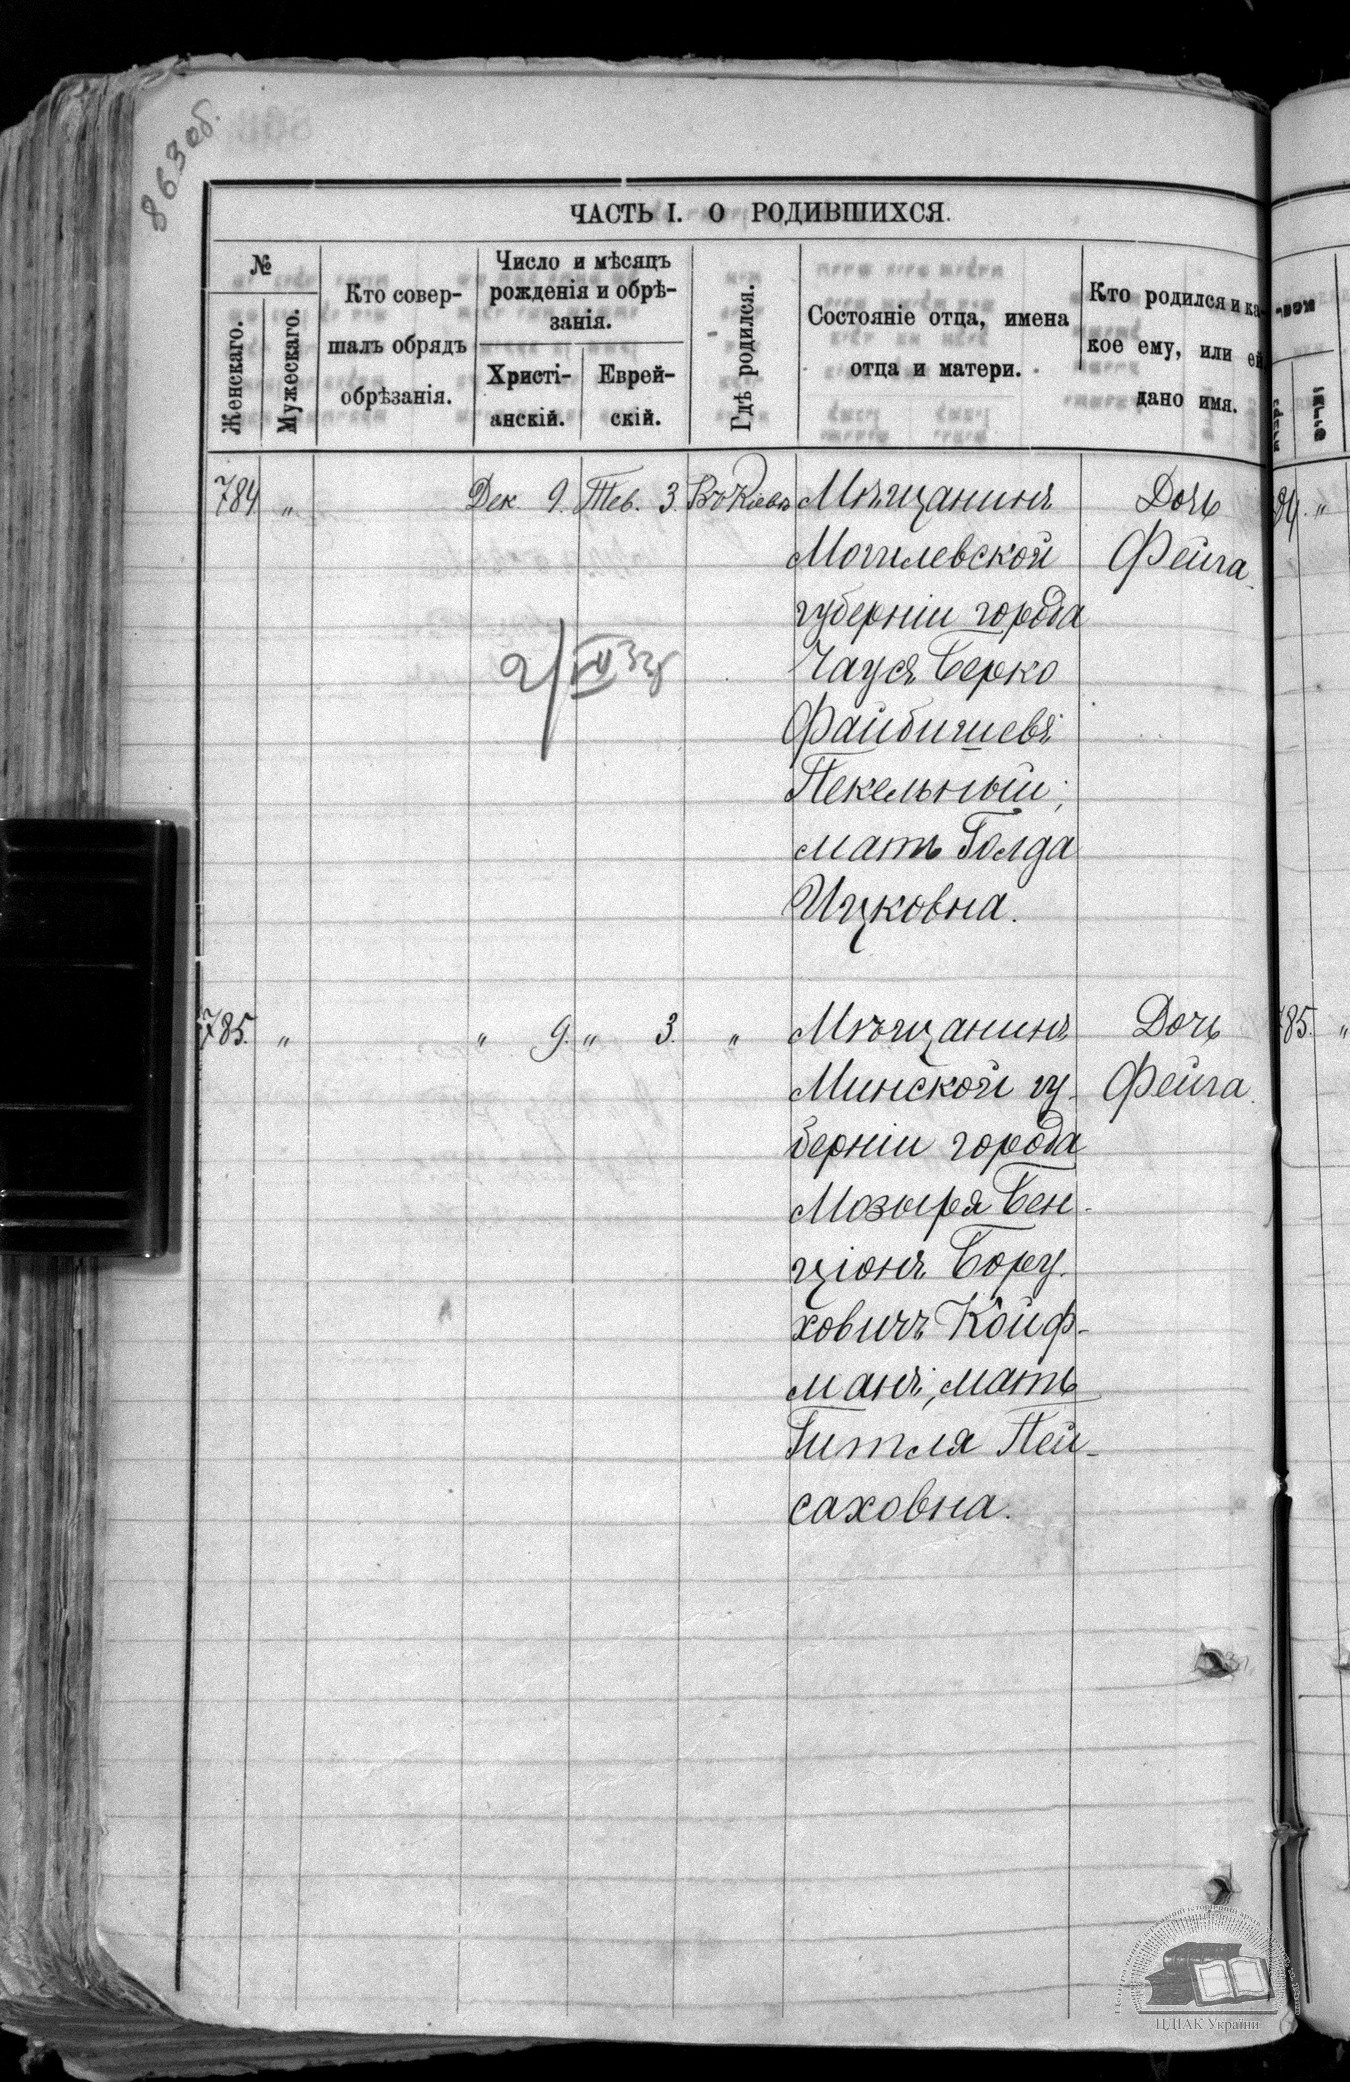 863 об.
ЧАСТЬ I. О РОДИВШИХСЯ.
№
Женскаго.
Мужескаго.
Кто совер-
шалъ обрядъ
обрѣзанія.
Число и мѣсяцъ
рожденія и обрѣ-
занія.
Христі-
анскій.
Еврей-
скій.
Гдѣ родился.
Состояніе отца, имена
отца и матери.
Кто родился и ка-
кое ему, или ей
дано имя.
784. „ Дек. 9. Тев. 3. Въ Кіевѣ Мѣщанинъ Дочь
Могилевской Фейга.
губерніи города
Чаусъ Берко
Файбишевъ
Пекельный;
мать Голда
Ицковна.
785. „ „ 9. „ 3. „ Мѣщанинъ Дочь
Минской гу- Фейга.
берніи города
Мозыря Бен-
ціонъ Бору-
ховичъ Койф-
манъ, мать
Гитля Пей-
саховна.
785. „
ЦДІАК України